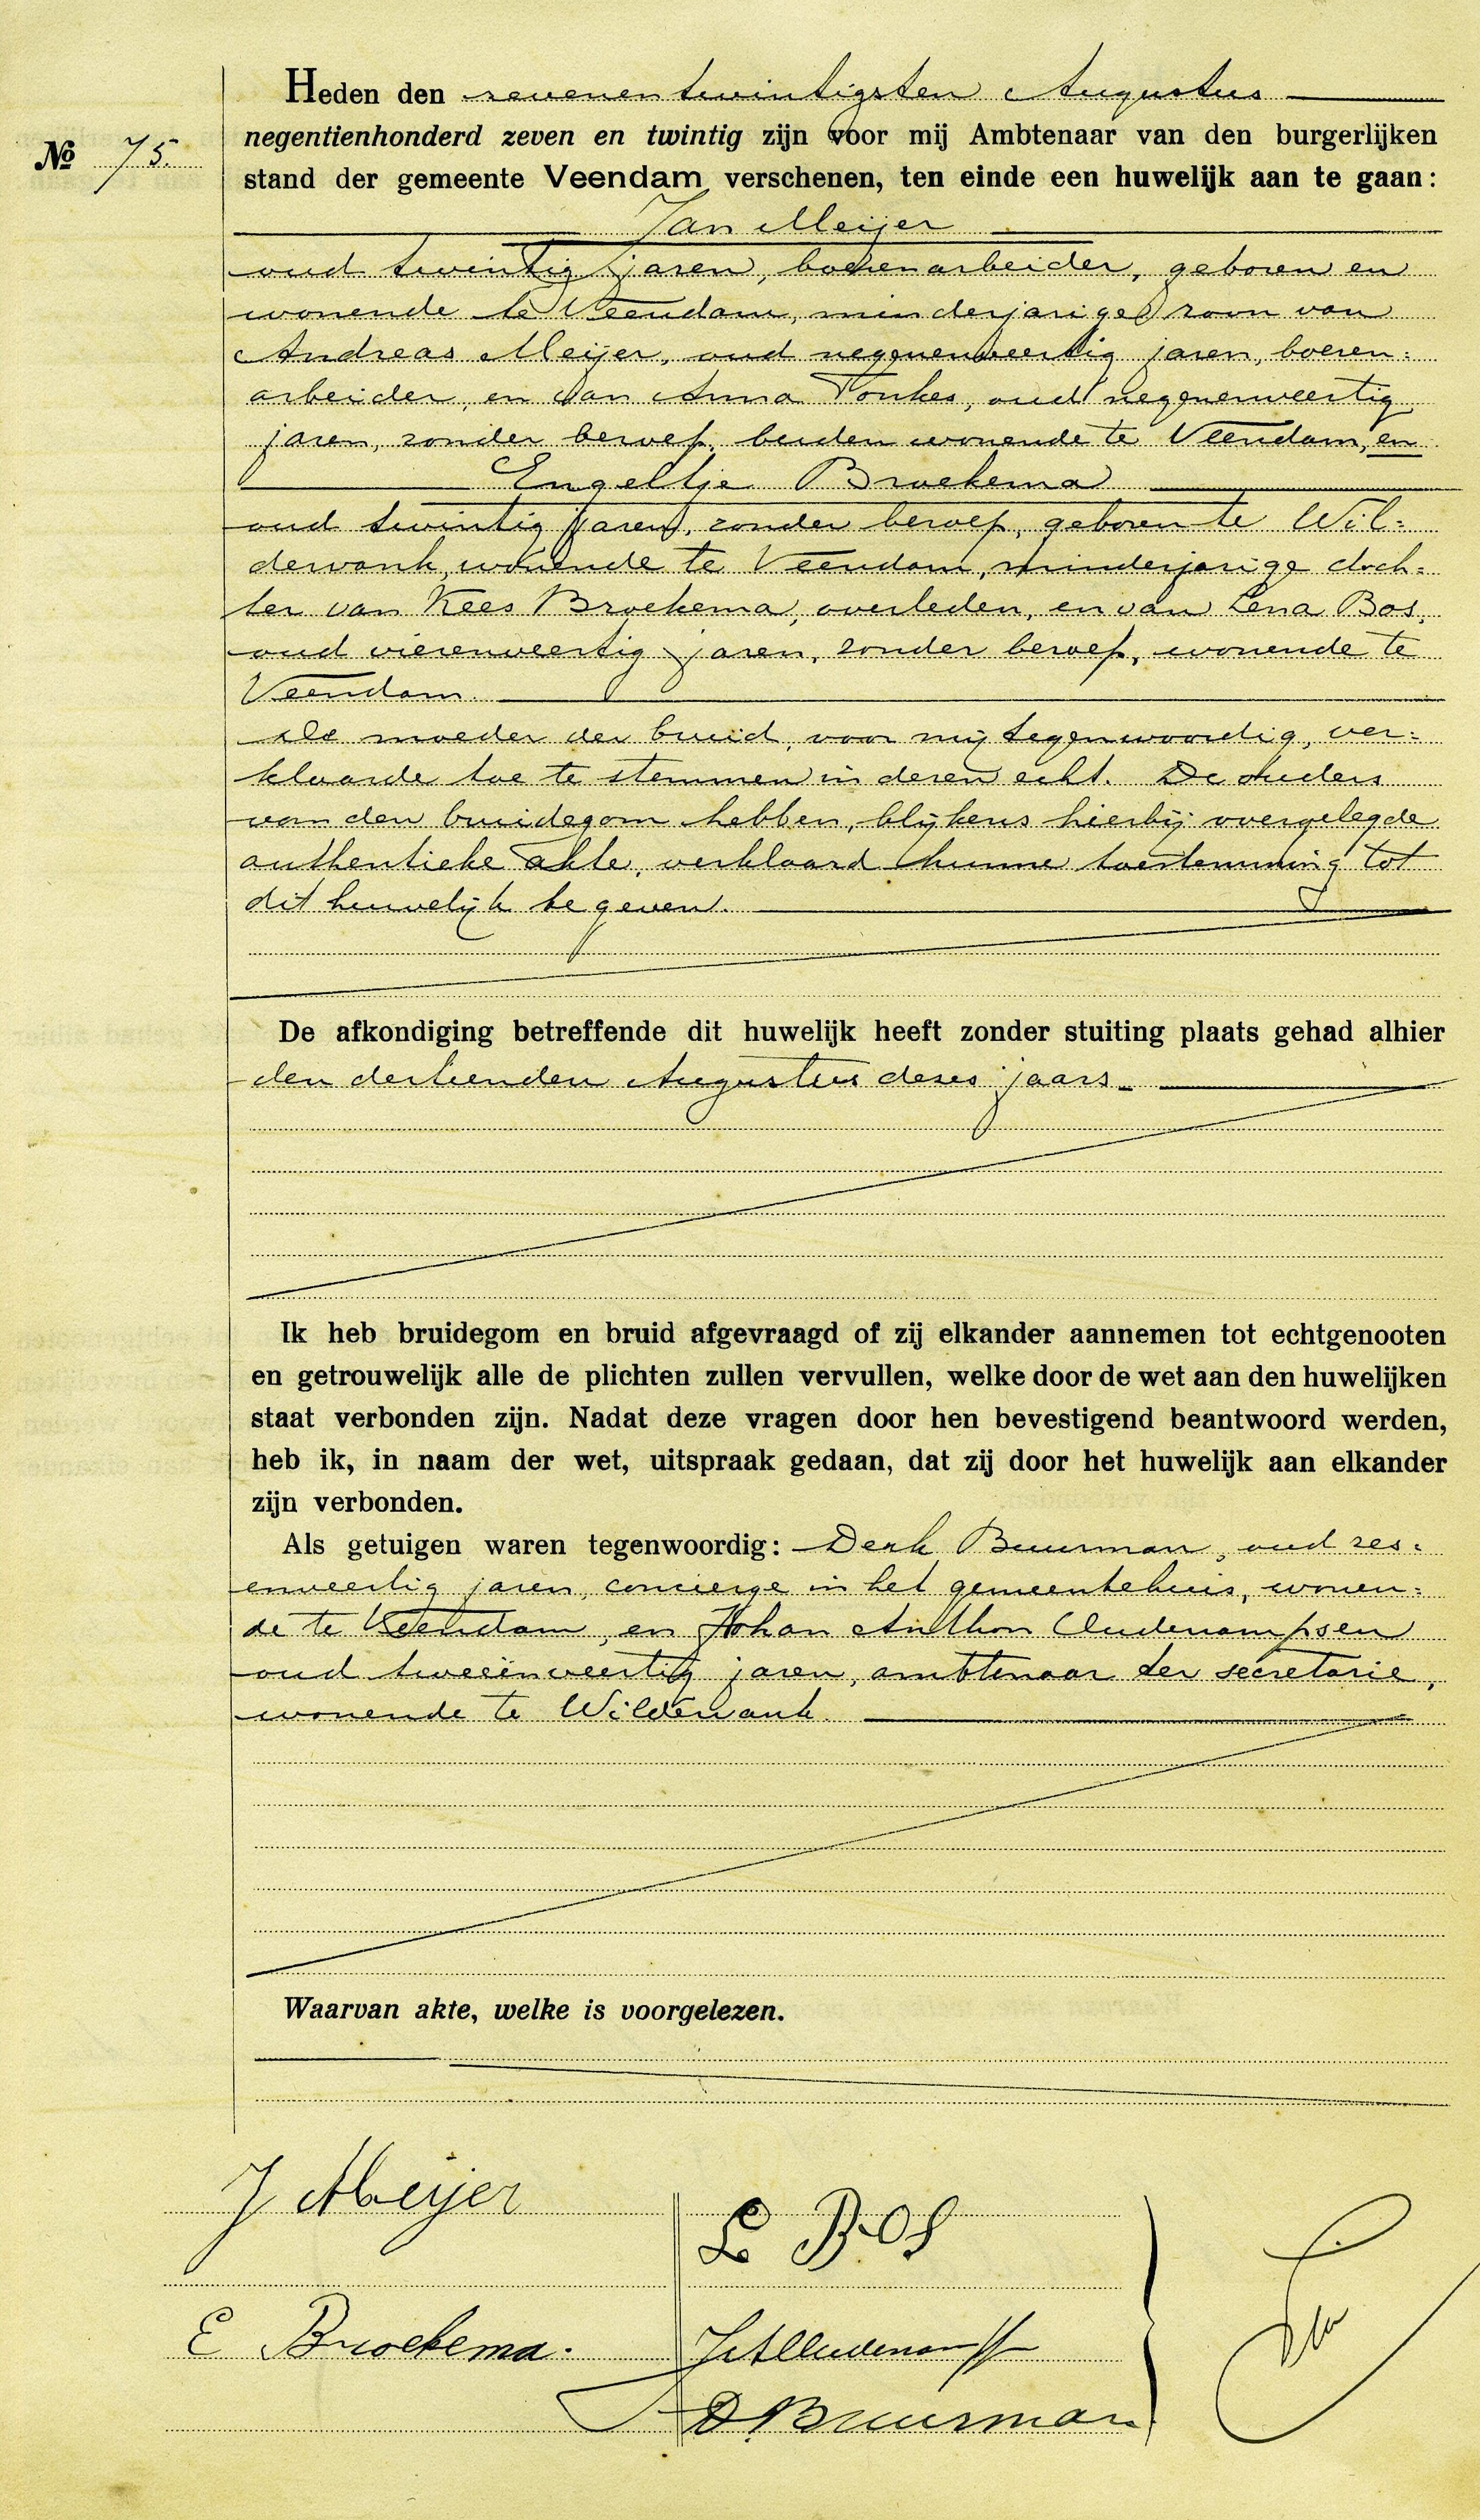 Heden den zevenentwintigsten Augustus
No 75.
negentienhonderd zeven en twintig zijn voor mij Ambtenaar van den burgerlijken
stand der gemeente Veendam verschenen, ten einde een huwelijk aan te gaan:
Jan Meijer
oud twintig jaren, boerenarbeider, geboren en
wonende te Veendam, minderjarige zoon van
Andreas Meijer, oud negenenveertig jaren, boeren=
arbeider, en van Anna Tonkes, oud negenenveertig
jaren, zonder beroep, beiden wonende te Veendam, en
Engeltje Broekema
oud twintig jaren, zonder beroep, geboren te Wil=
dervank, wonende te Veendam, minderjarige doch=
ter van Kees Broekema, overleden, en van Lena Bos,
oud vierenveertig jaren, zonder beroep, wonende te
Veendam.
als moeder der bruid, voor mij tegenwoordig, ver=
klaarde toe te stemmen in dezen echt. De ouders
van den bruidegom hebben, blijkens hierbij overgelegde
authentieke akte, verklaard hunne toestemming tot
dit huwelijk te geven.
De afkondiging betreffende dit huwelijk heeft zonder stuiting plaats gehad alhier
den dertienden Augustus dezes jaars.
Ik heb bruidegom en bruid afgevraagd of zij elkander aannemen tot echtgenooten
en getrouwelijk alle de plichten zullen vervullen, welke door de wet aan den huwelijken
staat verbonden zijn. Nadat deze vragen door hen bevestigend beantwoord werden,
heb ik, in naam der wet, uitspraak gedaan, dat zij door het huwelijk aan elkander
zijn verbonden.
Als getuigen waren tegenwoordig: Derk Buurman, oud zes=
enveertig jaren, concierge in het gemeentehuis, wonen=
de te Veendam, en Johan Anthon Oudenampsen
oud tweeënveertig jaren, ambtenaar ter secretarie,
wonende te Wildervank.
Waarvan akte, welke is voorgelezen.
J Meijer
L Bos
E Broekema.
D. Buurman